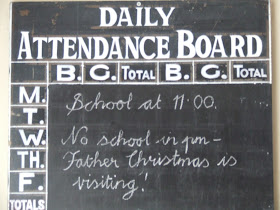 DAILY
ATTENDANCE BOARD
B. G. TOTAL B. G. TOTAL
M. School at 11.00.
T.
W. No school in pm –
TH. Father Christmas is
F. visiting!
TOTALS